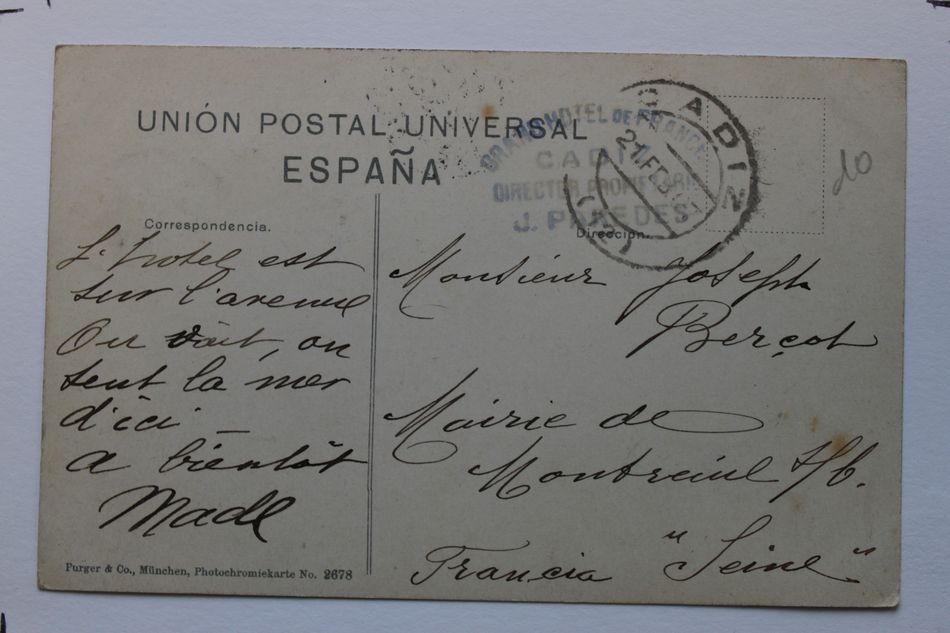 UNIÓN POSTAL UNIVERSAL
ESPAÑA
GRAND HOTEL DE FRANCE
CADIZ
DIRECTOR PROPIETARIO
J. PAREDES
CADIZ
21 FEB
10
Correspondencia.
L'hotel est
sur l'avenue
On voit, on
sent la mer
d'ici _
a bientôt
Made
Dirección.
Monsieur Joseph
Berçot
Mairie de
Montreuil s/b.
Francia "Seine"
Purger & Co., München, Photochromiekarte No. 2678